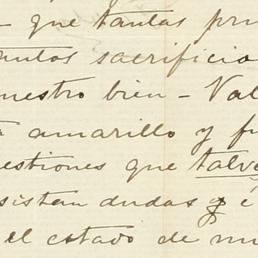 que tantas pru
antos sacrificio
nuestro bien – Val
amarillo y fu
estiones que talve
sistan dudas y é
el estado de mi